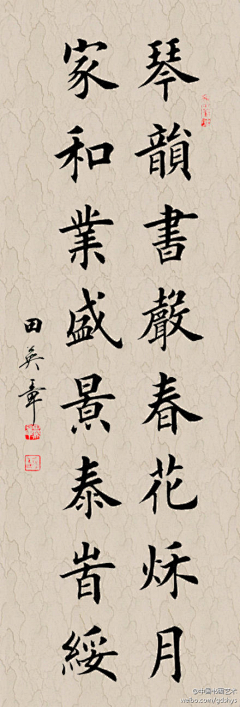 琴韻書聲春花秌月
家和業盛景泰岧綏
田英章
@中国书画艺术
weibo.com/gdshys